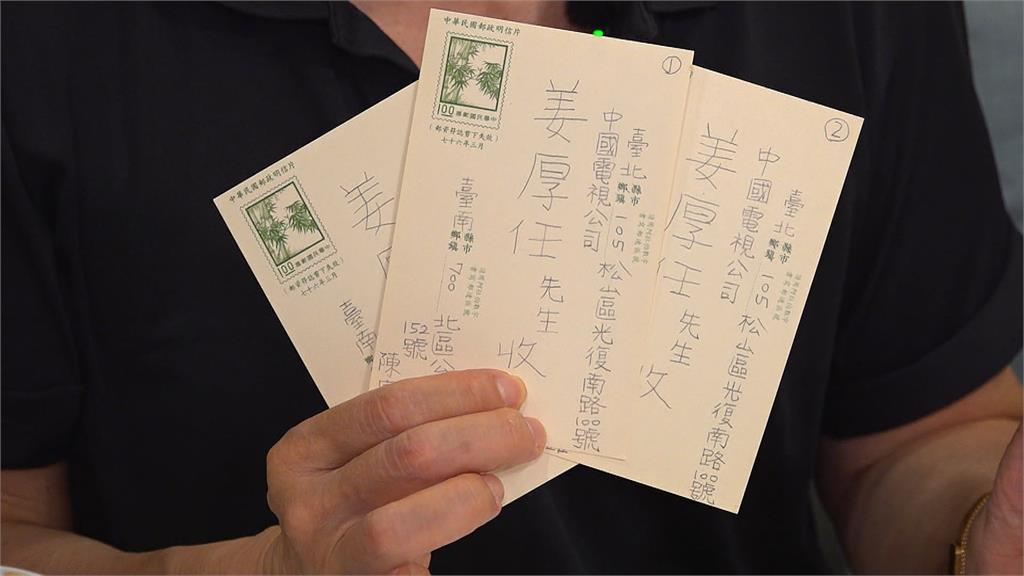 中華民國郵政明信片
100
中華民國郵票
(郵資符誌剪下失效)
七十六年三月
臺南
中華民國郵政明信片
①
100
中華民國郵票
(郵資符誌剪下失效)
七十六年三月
臺北縣市鄉鎮105松山區光復南路100號
中國電視公司
姜厚任先生收
臺南縣市鄉鎮700北區公
152號
陳
②
臺北縣市鄉鎮105松山區光復南路100號
中國電視公司
姜厚任先生收
姜